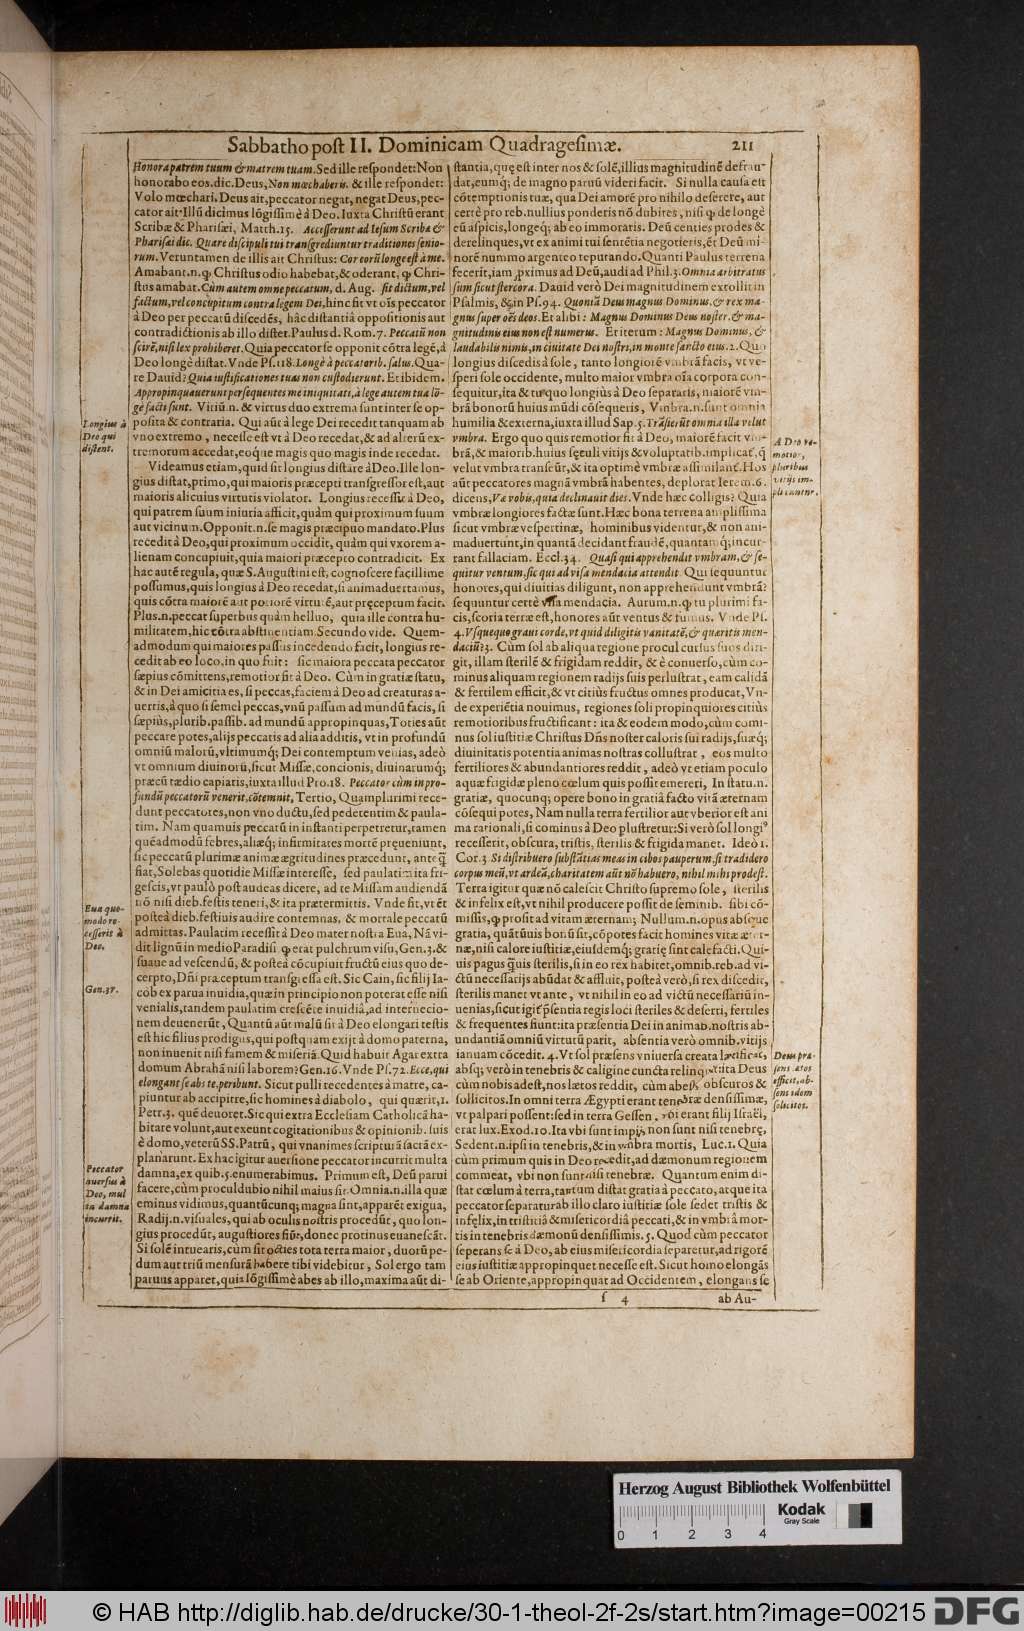 Sabbatho post II. Dominicam Quadragesimæ. 211
Honora patrem tuum & matrem tuam. Sed ille respondet: Non
honorabo eos. dic. Deus, Non mœchaberis. & ille respondet:
Volo mœchari. Deus ait, peccator negat, negat Deus, pec-
cator ait. Illũ dicimus lõgissimè à Deo. Iuxta Christũ erant
Scribæ & Pharisæi, Matth. 15. Accesserunt ad Iesum Scribæ &
Pharisæi dic. Quare discipuli tui transgrediuntur traditiones senio-
rum. Veruntamen de illis ait Christus: Cor eorũ longe est à me.
Amabant.n. φ Christus odio habebat, & oderant, φ Chri-
stus amabat. Cùm autem omne peccatum, d. Aug. sit dictum, vel
factum, vel concupitum contra legem Dei, hinc fit vt oĩs peccator
à Deo per peccatũ discedẽs, hâc distantià oppositionis aut
contradictionis ab illo distet. Paulus d. Rom. 7. Peccatũ non
scirẽ, nisi lex prohiberet. Quia peccator se opponit cõtra legẽ, à
Deo longè distat. Vnde Ps. 118. Longè à peccatorib. salus. Qua-
re Dauid? Quia iustificationes tuas non custodierunt. Et ibidem.
Appropinquauerunt persequentes me iniquitati, à lege autem tua lõ-
gè facti sunt. Vitiũ.n. & virtus duo extrema sunt inter se op-
posita & contraria. Qui aũt à lege Dei recedit tanquam ab
vno extremo, necesse est vt à Deo recedat, & ad alterũ ex-
tremorum accedat, eoq́ue magis quo magis inde recedat.
Videamus etiam, quid sit longius distare à Deo. Ille lon-
gius distat, primo, qui maioris præcepti transgressor est, aut
maioris alicuius virtutis violator. Longius recessit à Deo,
qui patrem suum iniuria afficit, quàm qui proximum suum
aut vicinum. Opponit.n. se magis præcipuo mandato. Plus
recedit à Deo, qui proximum occidit, quàm qui vxorem a-
lienam concupiuit, quia maiori præcepto contradicit. Ex
hac autẽ regula, quæ S. Augustini est, cognoscere facillime
possumus, quis longius à Deo recedat, si animaduertamus,
quis cõtra maiorẽ aut potiorẽ virtutẽ, aut pręceptum facit.
Plus.n. peccat superbus quàm helluo, quia ille contra hu-
militatem, hic cõtra abstinentiam. Secundo vide. Quem-
admodum qui maiores passus incedendo facit, longius re-
cedit ab eo loco, in quo fuit: sic maiora peccata peccator
sæpius cõmittens, remotior fit à Deo. Cùm in gratiæ statu,
& in Dei amicitia es, si peccas, faciem à Deo ad creaturas a-
uertis, à quo si semel peccas, vnũ passum ad mundũ facis, si
sæpiùs, plurib. passib. ad mundũ appropinquas, Toties aũt
peccare potes, alijs peccatis ad alia additis, vt in profundũ
omniũ malorũ, vltimumq́; Dei contemptum venias, adeò
vt omnium diuinorũ, sicut Missæ, concionis, diuinarumq́;
præcũ tædio capiaris, iuxta illud Pro. 18. Peccator cùm in pro-
fundũ peccatorũ venerit, cõtemnit, Tertio, Quamplurimi rece-
dunt peccatores, non vno ductu, sed pedetentim & paula-
tim. Nam quamuis peccatũ in instanti perpetretur, tamen
quẽadmodũ febres, aliæq́; infirmitates mortẽ pręueniunt,
sic peccatũ plurimæ animæ ægritudines præcedunt, anteq̃
fiat, Solebas quotidie Missæ interesse, sed paulatim ita fri-
gescis, vt paulò post audeas dicere, ad te Missam audiendã
nõ nisi dieb. festis teneri, & ita prætermittis. Vnde fit, vt ẽt
posteà dieb. festiuis audire contemnas, & mortale peccatũ
admittas. Paulatim recessit à Deo mater nostra Eua, Nã vi-
dit lignũ in medio Paradisi φ erat pulchrum visu, Gen. 3. &
suaue ad vescendũ, & posteà cõcupiuit fructũ eius quo de-
cerpto, Dñi præceptum transgressa est. Sic Cain, sic filij Ia-
cob ex parua inuidia, quæ in principio non poterat esse nisi
venialis, tandem paulatim crescẽte inuidiâ, ad internecio-
nem deuenerũt, Quantũ aũt malũ sit à Deo elongari testis
est hic filius prodigus, qui postquam exijt à domo paterna,
non inuenit nisi famem & miseriã. Quid habuit Agar extra
domum Abrahã nisi laborem? Gen. 16. Vnde Ps. 72. Ecce, qui
elongant se abs te, peribunt. Sicut pulli recedentes à matre, ca-
piuntur ab accipitre, sic homines à diabolo, qui quærit, 1.
Petr. 3. quẽ deuoret. Sic qui extra Ecclesiam Catholicã ha-
bitare volunt, aut exeunt cogitationibus & opinionib. suis
è domo, veterũ SS. Patrũ, qui vnanimes scripturã sactã ex-
planarunt. Ex hac igitur auersione peccator incurrit multa
damna, ex quib. 5. enumerabimus. Primum est, Deũ parui
facere, cùm proculdubio nihil maius sit. Omnia.n. illa quæ
eminus vidimus, quantũcunq; magna sint, apparẽt exigua,
Radij.n. visuales, qui ab oculis nostris procedũt, quo lon-
gius procedũt, augustiores fiũt, donec protinus euanescãt.
Si solẽ intuearis, cùm sit octies tota terra maior, duorũ pe-
dum aut triũ mensurã habere tibi videbitur, Sol ergo tam
paruus apparet, quia lõgissimè abes ab illo, maxima aũt di-
stantia, quę est inter nos & solẽ, illius magnitudinẽ defrau-
dat, eumq́; de magno paruũ videri facit. Si nulla causa est
cõtemptionis tuæ, qua Dei amorẽ pro nihilo deserere, aut
certè pro reb. nullius ponderis nõ dubites, nisi φ de longè
eũ aspicis, longeq́; ab eo immoraris. Deũ centies prodes &
derelinques, vt ex animi tui sentẽtia negotieris, ẽt Deũ mi-
norẽ nummo argenteo reputando. Quanti Paulus terrena
fecerit, iam proximus ad Deũ, audi ad Phil. 3. Omnia arbitratus
sum sicut stercora. Dauid verò Dei magnitudinem extollit in
Psalmis, & in Ps. 94. Quoniã Deus magnus Dominus, & rex ma-
gnus super oẽs deos. Et alibi: Magnus Dominus Deus noster. & ma-
gnitudinis eius non est numerus. Et iterum: Magnus Dominus, &
laudabilis nimis, in ciuitate Dei nostri, in monte sancto eius. 2. Quo
longius discedis à sole, tanto longiorẽ vmbrã facis, vt ve-
speri sole occidente, multo maior vmbra oĩa corpora con-
sequitur, ita & tu quo longiùs à Deo separaris, maiorẽ vm-
brã bonorũ huius mũdi cõsequeris, Vmbra.n. sunt omnia
humilia & externa, iuxta illud Sap. 5. Trãsierũt omnia illa velut
vmbra. Ergo quo quis remotior fit à Deo, maiorẽ facit vm-
brã, & maiorib. huius sęculi vitijs & voluptatib. implicat́, q̃
velut vmbra transeũt, & ita optimè vmbræ assimilant́. Hos
aũt peccatores magnã vmbrã habentes, deplorat Ierem. 6.
dicens, Væ vobis, quia declinauit dies. Vnde hæc colligis? Quia
vmbræ longiores factæ sunt. Hæc bona terrena amplissima
sicut vmbræ vespertinæ, hominibus videntur, & non ani-
maduertunt, in quantã decidant fraudẽ, quantamq́; incur-
rant fallaciam. Eccl. 34. Quasi qui apprehendit vmbram, & se-
quitur ventum, sic qui ad visa mendacia attendit. Qui sequuntur
honores, qui diuitias diligunt, non apprehendunt vmbrã?
sequuntur certè visa mendacia. Aurum.n. φ tu plurimi fa-
cis, scoria terræ est, honores aũt ventus & fumus. Vnde Ps.
4. Vsquequo graui corde, vt quid diligitis vanitatẽ, & quæritis men-
daciũ? 3. Cùm sol ab aliqua regione procul cursus suos diri-
git, illam sterilẽ & frigidam reddit, & è conuerso, cùm co-
minus aliquam regionem radijs suis perlustrat, eam calidã
& fertilem efficit, & vt citiùs fructus omnes producat, Vn-
de experiẽtia nouimus, regiones soli propinquiores citiùs
remotioribus fructificant: ita & eodem modo, cùm comi-
nus sol iustitiæ Christus Dñs noster caloris sui radijs, suæq́;
diuinitatis potentia animas nostras collustrat, eos multo
fertiliores & abundantiores reddit, adeò vt etiam poculo
aquæ frigidæ pleno cœlum quis possit emereri, In statu.n.
gratiæ, quocunq; opere bono in gratiâ facto vitã æternam
cõsequi potes, Nam nulla terra fertilior aut vberior est ani
ma rationali, si cominus à Deo plustretur: Si verò sol longi⁹
recesserit, obscura, tristis, sterilis & frigida manet. Ideò 1.
Cor. 3. Si distribuero substãtias meas in cibos pauperum. si tradidero
corpus meũ, vt ardeã, charitatem aũt nõ habuero, nihil mihi prodest.
Terra igitur quæ nõ calescit Christo supremo sole, sterilis
& infelix est, vt nihil producere possit de seminib. sibi cõ-
missis, φ prosit ad vitam æternam; Nullum.n. opus absque
gratia, quãtũuis bonũ sit, cõpotes facit homines vitæ æter-
næ, nisi calore iustitiæ, eiusdemq́; gratię sint calefacti. Qui-
uis pagus quãuis sterilis, si in eo rex habitet, omnib. reb. ad vi-
ctũ necessarijs abũdat & affluit, posteà verò, si rex discedit,
sterilis manet vt ante, vt nihil in eo ad victũ necessariũ in-
uenias, sicut igit́ p̃sentia regis loci steriles & deserti, fertiles
& frequentes fiunt: ita præsentia Dei in animab. nostris ab-
undantiã omniũ virtutũ parit, absentia verò omnib. vitijs
ianuam cõcedit. 4. Vt sol præsens vniuersa creata lætificat,
absq́; verò in tenebris & caligine cuncta relinquit: ita Deus
cùm nobis adest, nos lætos reddit, cùm abest, obscuros &
sollicitos. In omni terra Ægypti erant tenebræ densissimæ,
vt palpari possent: sed in terra Gessen, vbi erant filij Israël,
erat lux. Exod. 10. Ita vbi sunt impij, non sunt nisi tenebrę,
Sedent.n. ipsi in tenebris, & in vmbra mortis, Luc. 1. Quia
cùm primum quis in Deo recedit, ad dæmonum regionem
commeat, vbi non sunt nisi tenebræ. Quantum enim di-
stat cœlum à terra, tantum distat gratia à peccato, atque ita
peccator separatur ab illo claro iustitiæ sole sedet tristis &
infęlix, in tristitiâ & misericordiâ peccati, & in vmbrâ mor-
tis in tenebris dæmonũ densissimis. 5. Quod cùm peccator
seperans se à Deo, ab eius misericordia separetur, ad rigorẽ
eius iustitiæ appropinquet necesse est. Sicut homo elongãs
se ab Oriente, appropinquat ad Occidentem, elongans se
f 4 ab Au-
Longius à
Deo qui
distent.
Eua quo-
modo re-
cesserit à
Deo.
Gen. 37.
Peccator
auersus à
Deo, mul
ta damna
incurrit.
A Deo re-
motior,
pluribus
vitijs im-
plicantur.
Deus præ-
sens lætos
efficit, ab-
sens idem
solicitos.
Herzog August Bibliothek Wolfenbüttel
Kodak
Gray Scale
0 1 2 3 4
© HAB http://diglib.hab.de/drucke/30-1-theol-2f-2s/start.htm?image=00215
DFG